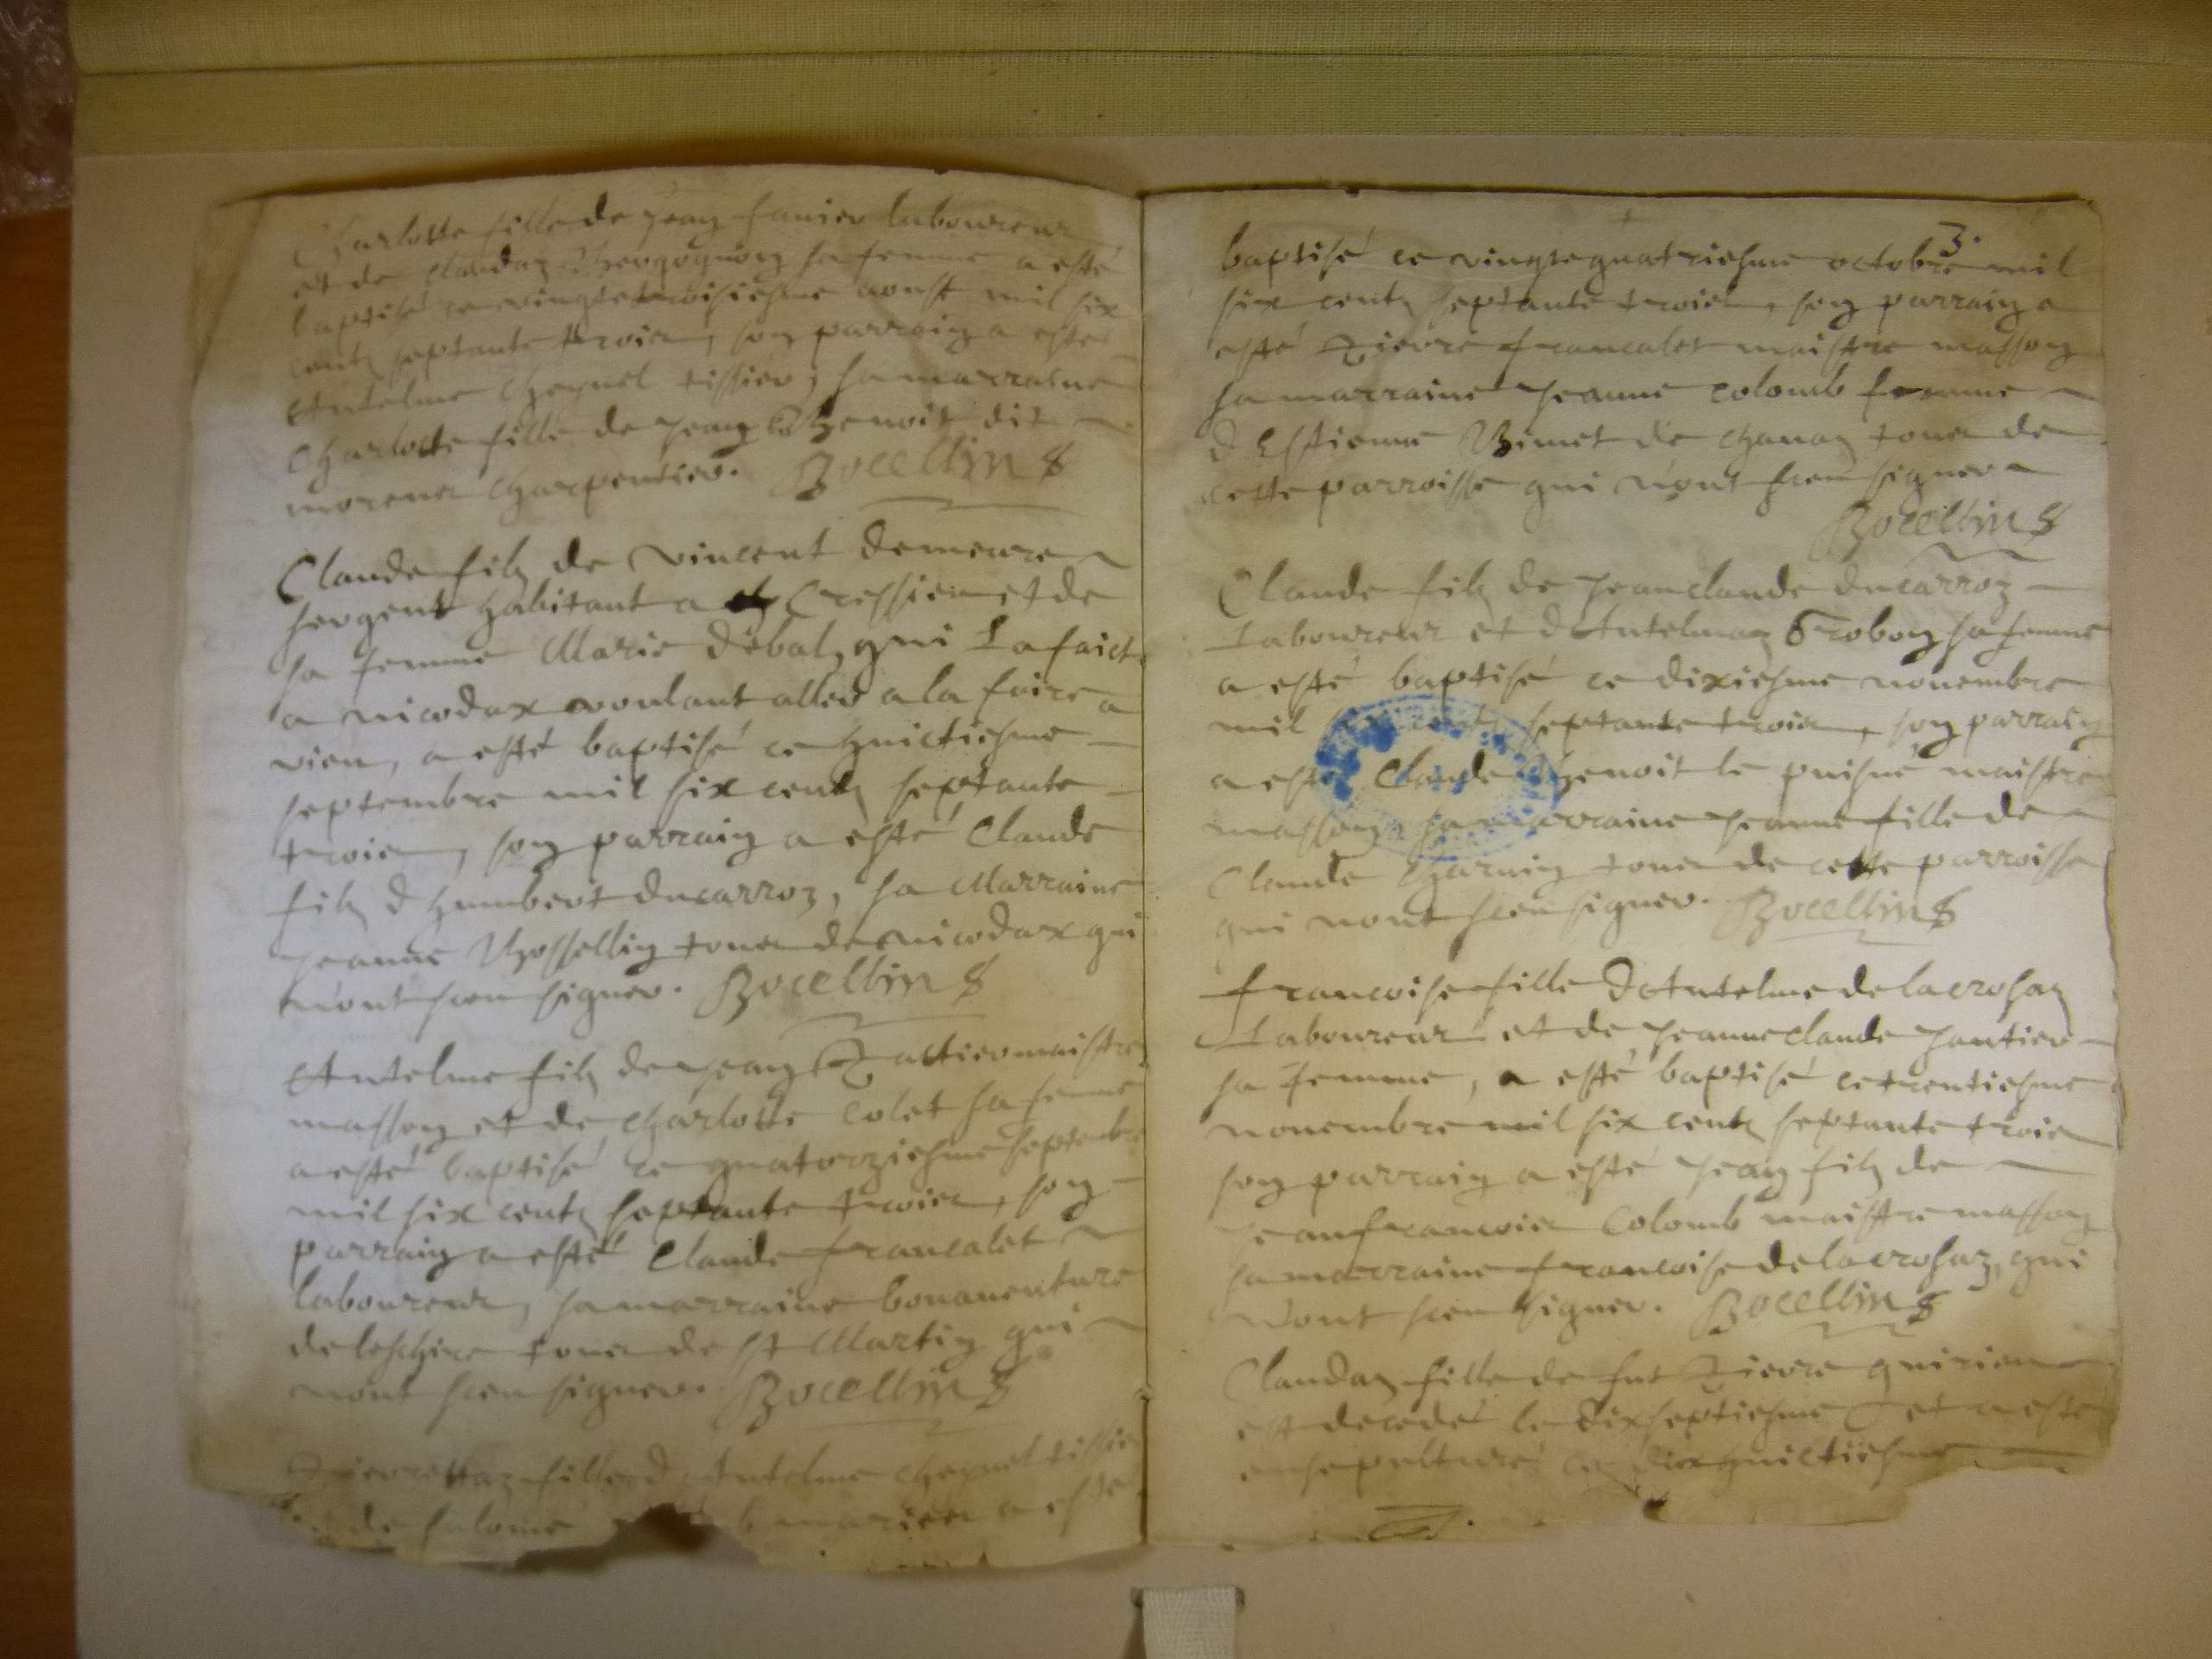 Charlotte fille de Jean fanier laboureur
et de Claudaz sa femme a esté
baptisé ce vingtetroisiesme aoust mil six
centz septante trois, son parrain a esté
Antelme Cheynel tissier, sa marraine
Charlotte fille de Jean Benoit dit
morena charpentier. Bocellin
Claude filz de vincent demeure
sergent habitant a Cressieu et de
sa femme Marie debal, qui la faict
a nicodax voulant aller a la foire a
vieu, a esté baptisé ce huictiesme
septembre mil six centz septante
trois, son parrain a esté Claude
filz d humbert ducarroz, sa Marraine
Jeanne Bossellin tous de nicodax qui
n'ont sceu signer. Bocellin
Antelme filz de Jean maistre
masson et de Charlotte Colet sa femme
a esté baptisé ce quatorziesme septembre
mil six centz septante trois, son
parrain a esté Claude francalet
laboureur, sa marraine bonaventure
de leschire tous de st Martin qui
n'ont sceu signer. Bocellin
Pierrettaz fille d Antelme Cheynel tissier
de salome a esté
3.
baptisé ce vingtequatriesme octobre mil
six centz septante trois, son parrain a
esté Pierre francalet maistre masson
sa marraine Jeanne Colomb femme
d Estienne Binet de chanaz tous de
cette parroisse qui n'ont sceu signer
Bocellin
Claude filz de Jeanclaude ducarroz
Laboureur et d Antelmaz sa femme
a esté baptisé ce dixiesme novembre
mil six centz septante trois, son parrain
a esté Claude Benoit le puisné maistre
masson, sa marraine Jeanne fille de
Claude tous de cette parroisse
qui n'ont sceu signer. Bocellin
francoise fille d Antelme de lacrosaz
Laboureur et de Jeanneclaude Jantier
sa femme, a esté baptisé ce trentiesme
novembre mil six centz septante trois
son parrain a esté Jean filz de
Jeanfrancois Colomb maistre masson
sa marraine francoise de lacrosaz, qui
n'ont sceu signer. Bocellin
Claudaz fille de fut Pierre
est decedé le dixseptiesme et a esté
ensepulturé ce dixhuictiesme